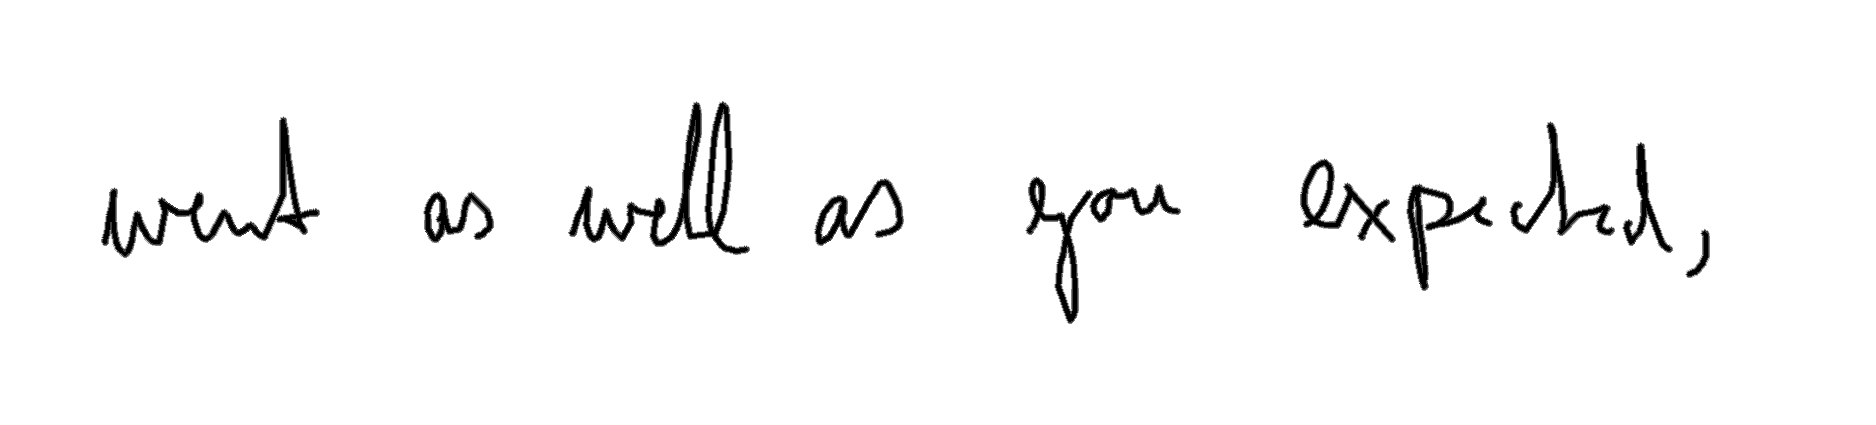 went as well as you expected,